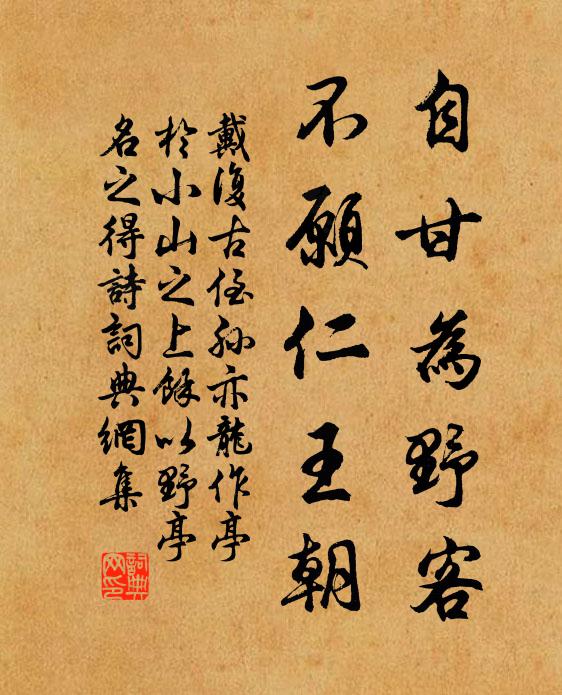 自甘為野客
不願仁王朝
戴復古侄孙亦龍作亭
於小山之上餘以野亭
名之得詩詞典網集
詞典
网印